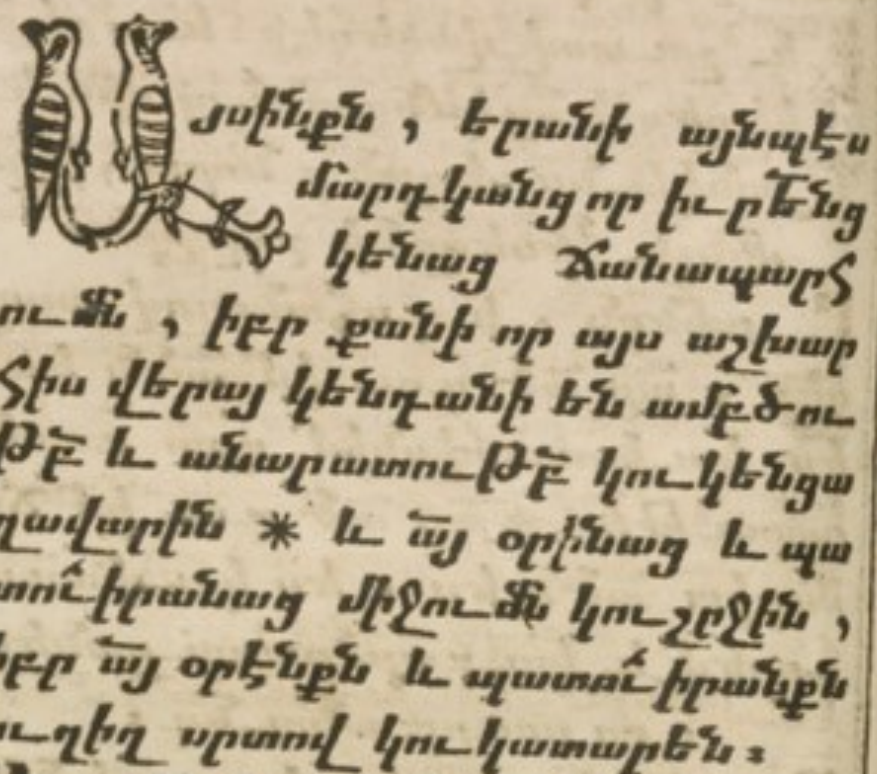 Այսինքն , երանի այնպէս
մարդկանց որ իւրե՟նց
կենաց ճանապարհ
ումն , իբր քանի որ այս աշխար
հիս վերայ կենդանի են ամբծու
թ՟բ և անարատութ՟բ կու կենցա
ղավարին * և ա՟յ օրինաց և պա
տուիրանաց միջումն կու շրջին ,
իբր ա՟յ օրէնքն և պատուիրանքն
ուղիղ սրտով կու կատարեն ։